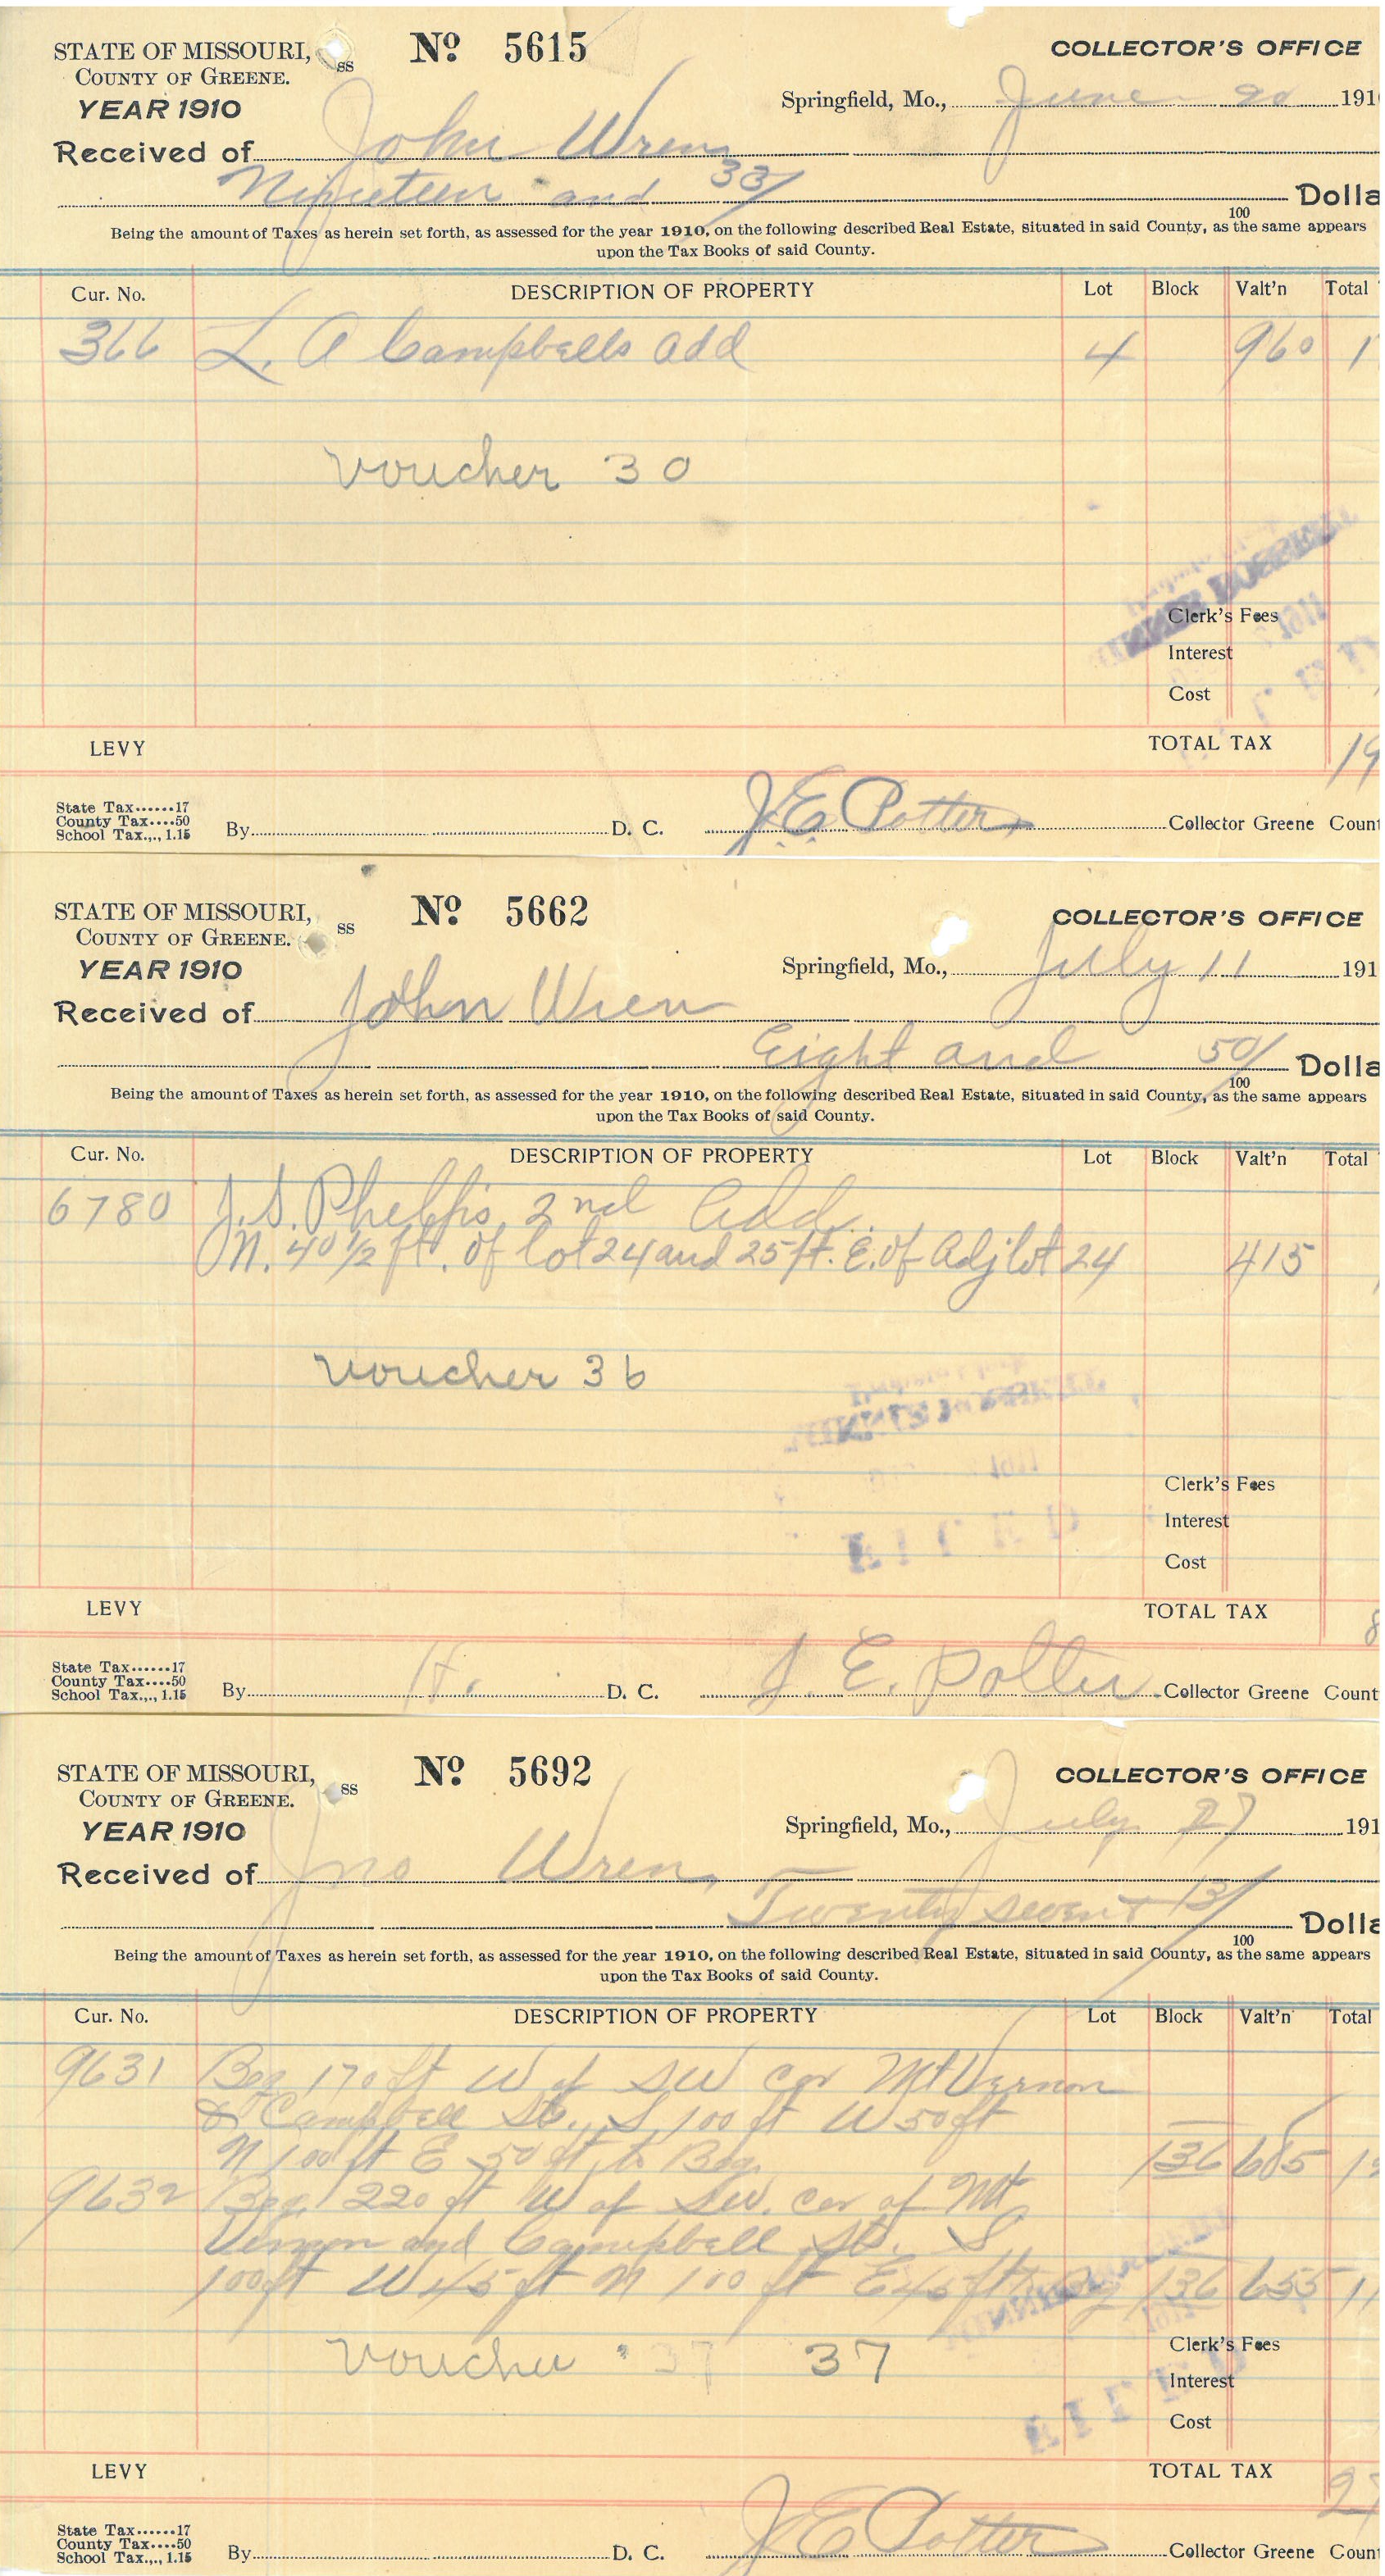 STATE OF MISSOURI, ss No 5615 COLLECTOR'S OFFICE
COUNTY OF GREENE.
YEAR 1910 Springfield, Mo., June 20 191
Received of John Wren
Nineteen and 33/ Dolla
100
Being the amount of Taxes as herein set forth, as assessed for the year 1910, on the following described Real Estate, situated in said County, as the same appears
upon the Tax Books of said County.
Cur. No. DESCRIPTION OF PROPERTY Lot Block Valt'n Total
366 L. A Campbells add 4 960 1
Voucher 30
Clerk's Fees
Interest
Cost
LEVY TOTAL TAX 19
State Tax......17
County Tax....50
School Tax.,., 1.15 By D. C. J. E. Potter Collector Greene Count
STATE OF MISSOURI, ss No 5662 COLLECTOR'S OFFICE
COUNTY OF GREENE.
YEAR 1910 Springfield, Mo., July 11 191
Received of John Wren
Eight and 50/ Dolla
100
Being the amount of Taxes as herein set forth, as assessed for the year 1910, on the following described Real Estate, situated in said County, as the same appears
upon the Tax Books of said County.
Cur. No. DESCRIPTION OF PROPERTY Lot Block Valt'n Total
6780 J. S. Phelps, 2nd Add.
N. 40 1/2 ft. of lot 24 and 25 ft. E. of Adj lot 24 415
Voucher 36
Clerk's Fees
Interest
Cost
LEVY TOTAL TAX 8
State Tax......17
County Tax....50
School Tax.,., 1.15 By H. D. C. J. E. Potter Collector Greene Count
STATE OF MISSOURI, ss No 5692 COLLECTOR'S OFFICE
COUNTY OF GREENE.
YEAR 1910 Springfield, Mo., July 27 191
Received of Jno Wren,
Twenty seven + 13/ Dolla
100
Being the amount of Taxes as herein set forth, as assessed for the year 1910, on the following described Real Estate, situated in said County, as the same appears
upon the Tax Books of said County.
Cur. No. DESCRIPTION OF PROPERTY Lot Block Valt'n Total
9631 Beg 170 ft W of SW cor Mt Vernon
& Campbell St., S 100 ft W 50 ft
N 100 ft E 50 ft to Beg. 136 685 1
9632 Beg. 220 ft W of SW. cor of Mt
Vernon and Campbell St. S
100 ft W 45 ft N 100 ft E 45 ft to Beg 136 655 11
Voucher 37 37
Clerk's Fees
Interest
Cost
LEVY TOTAL TAX 27
State Tax......17
County Tax....50
School Tax.,., 1.15 By D. C. J. E. Potter Collector Greene Count